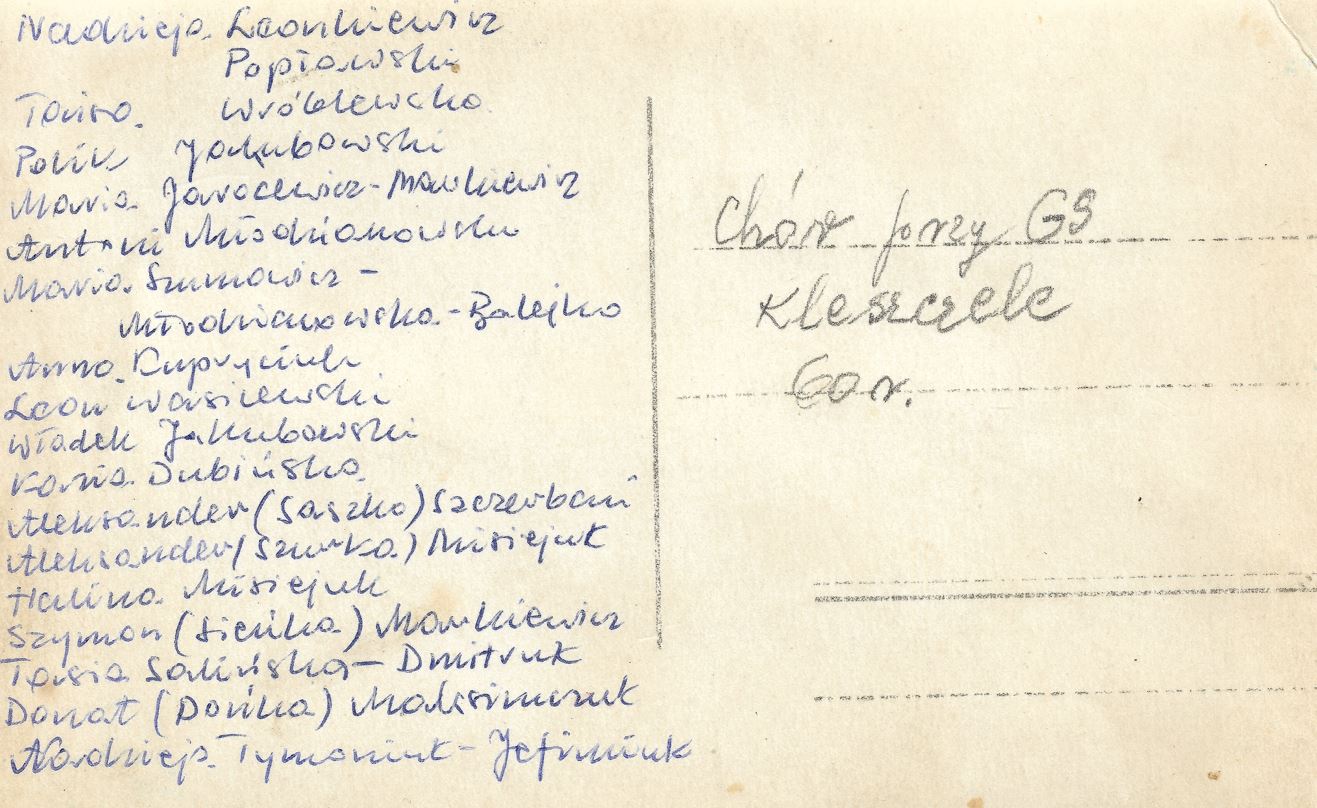 Nadzieja Leonkiewicz
Popławski
Taisa Wróblewska
Polik Jakubowski
Maria Jarocewicz-Markiewicz
Antoni Młodzianowski
Maria Szumowicz -
Młodzianowska-Balejko
Anna Kupryciuk
Leon Wasilewski
Władek Jakubowski
Kazia Dubińska
Aleksander (Saszko) Szczerbań
Aleksander (Szurka) Misiejuk
Halina Misiejuk
Szymon (Sieńka) Markiewicz
Tasia Sakińska - Dmitruk
Donat (Dońka) Maksimiuk
Nadzieja Tymaniuk - Jefimiuk
Chór przy GS
Kleszczele